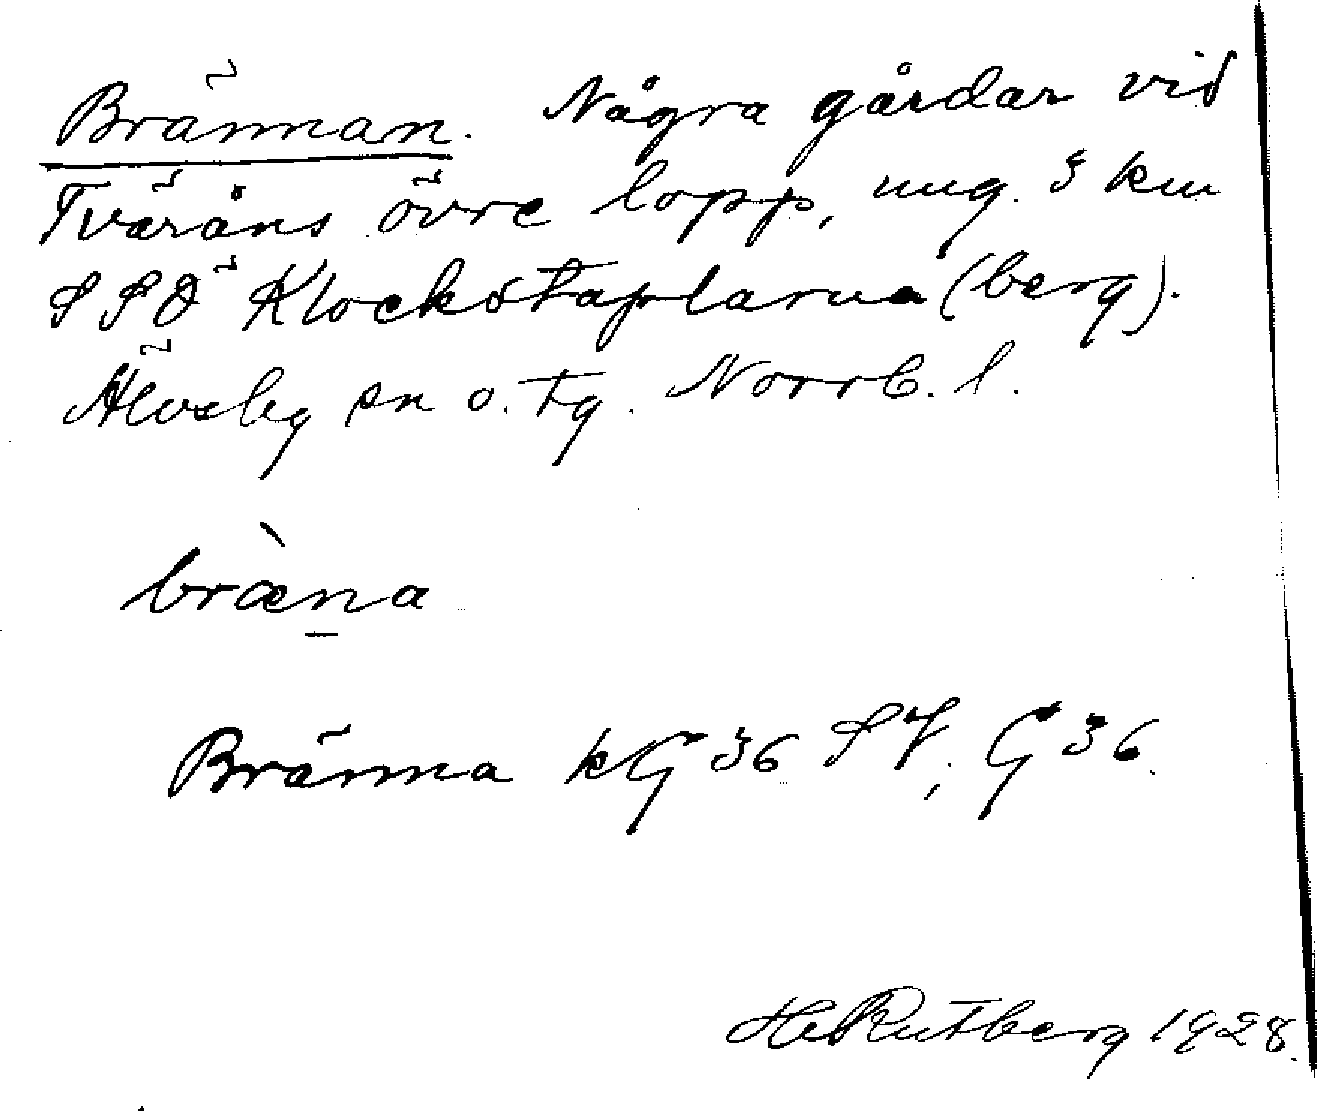 Brännan. Några gårdar vid
Tväråns övre lopp, ung. 3 km
SSÖ Klockstaplarna (berg).
Älvsby sn o. tg. Norrb. l.
bræ̀n̲a
Bränna kG 36 SV, G 36.
He Rutberg 1928.